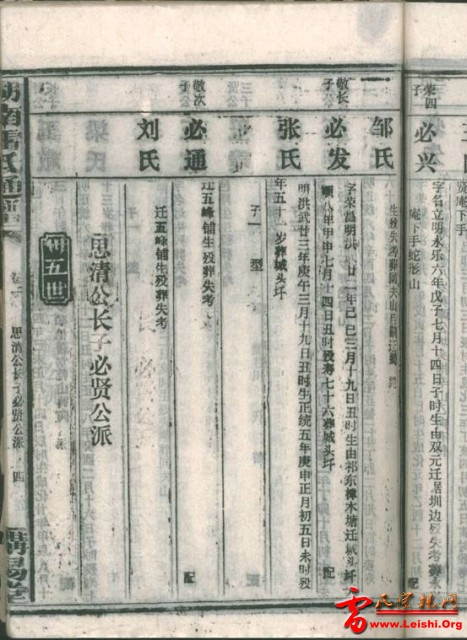 荣四子
必兴
字名立明永乐六年戊子七月十四日子时生由双元迁居圳边殁失考葬
庵下手蛇形山
邹氏
生殁失考葬同夫山
敬长子
必发
字荣昌明洪 廿一年己巳三月十九日丑时生由祁东樟木塘迁城头圷
顺八年甲申七月十四日丑时殁寿七十六葬城头圷
张氏
明洪武廿三年庚午三月十九日丑时生正统五年庚申正月初五日未时殁
年五十一岁葬城头圷
配
子一 型
敬次子
必通
迁五峰铺生殁葬失考
刘氏
迁五峰铺生殁葬失考
配
思清公长子必贤公派
卅五世
思清公长子必贤公派
四
www.Leishi.Org